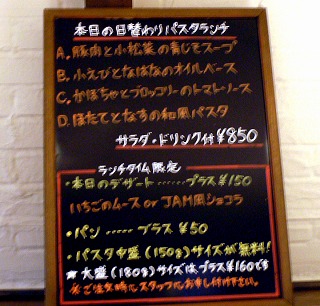 本日の日替わりパスタランチ
A. 豚肉と小松菜の青じそスープ
B. 小えびとなばなのオイルベース
C. かぼちゃとブロッコリーのトマトソース
D. ほたてとなすの和風パスタ
サラダ・ドリンク付¥850
ランチタイム限定
・本日のデザート……プラス¥150
いちごのムース or JAM風ショコラ
・パン……プラス ¥50
・パスタ中盛(150g)サイズが無料!
★大盛(180g)サイズはプラス¥160です
※ご注文時にスタッフにお申し付け下さい。